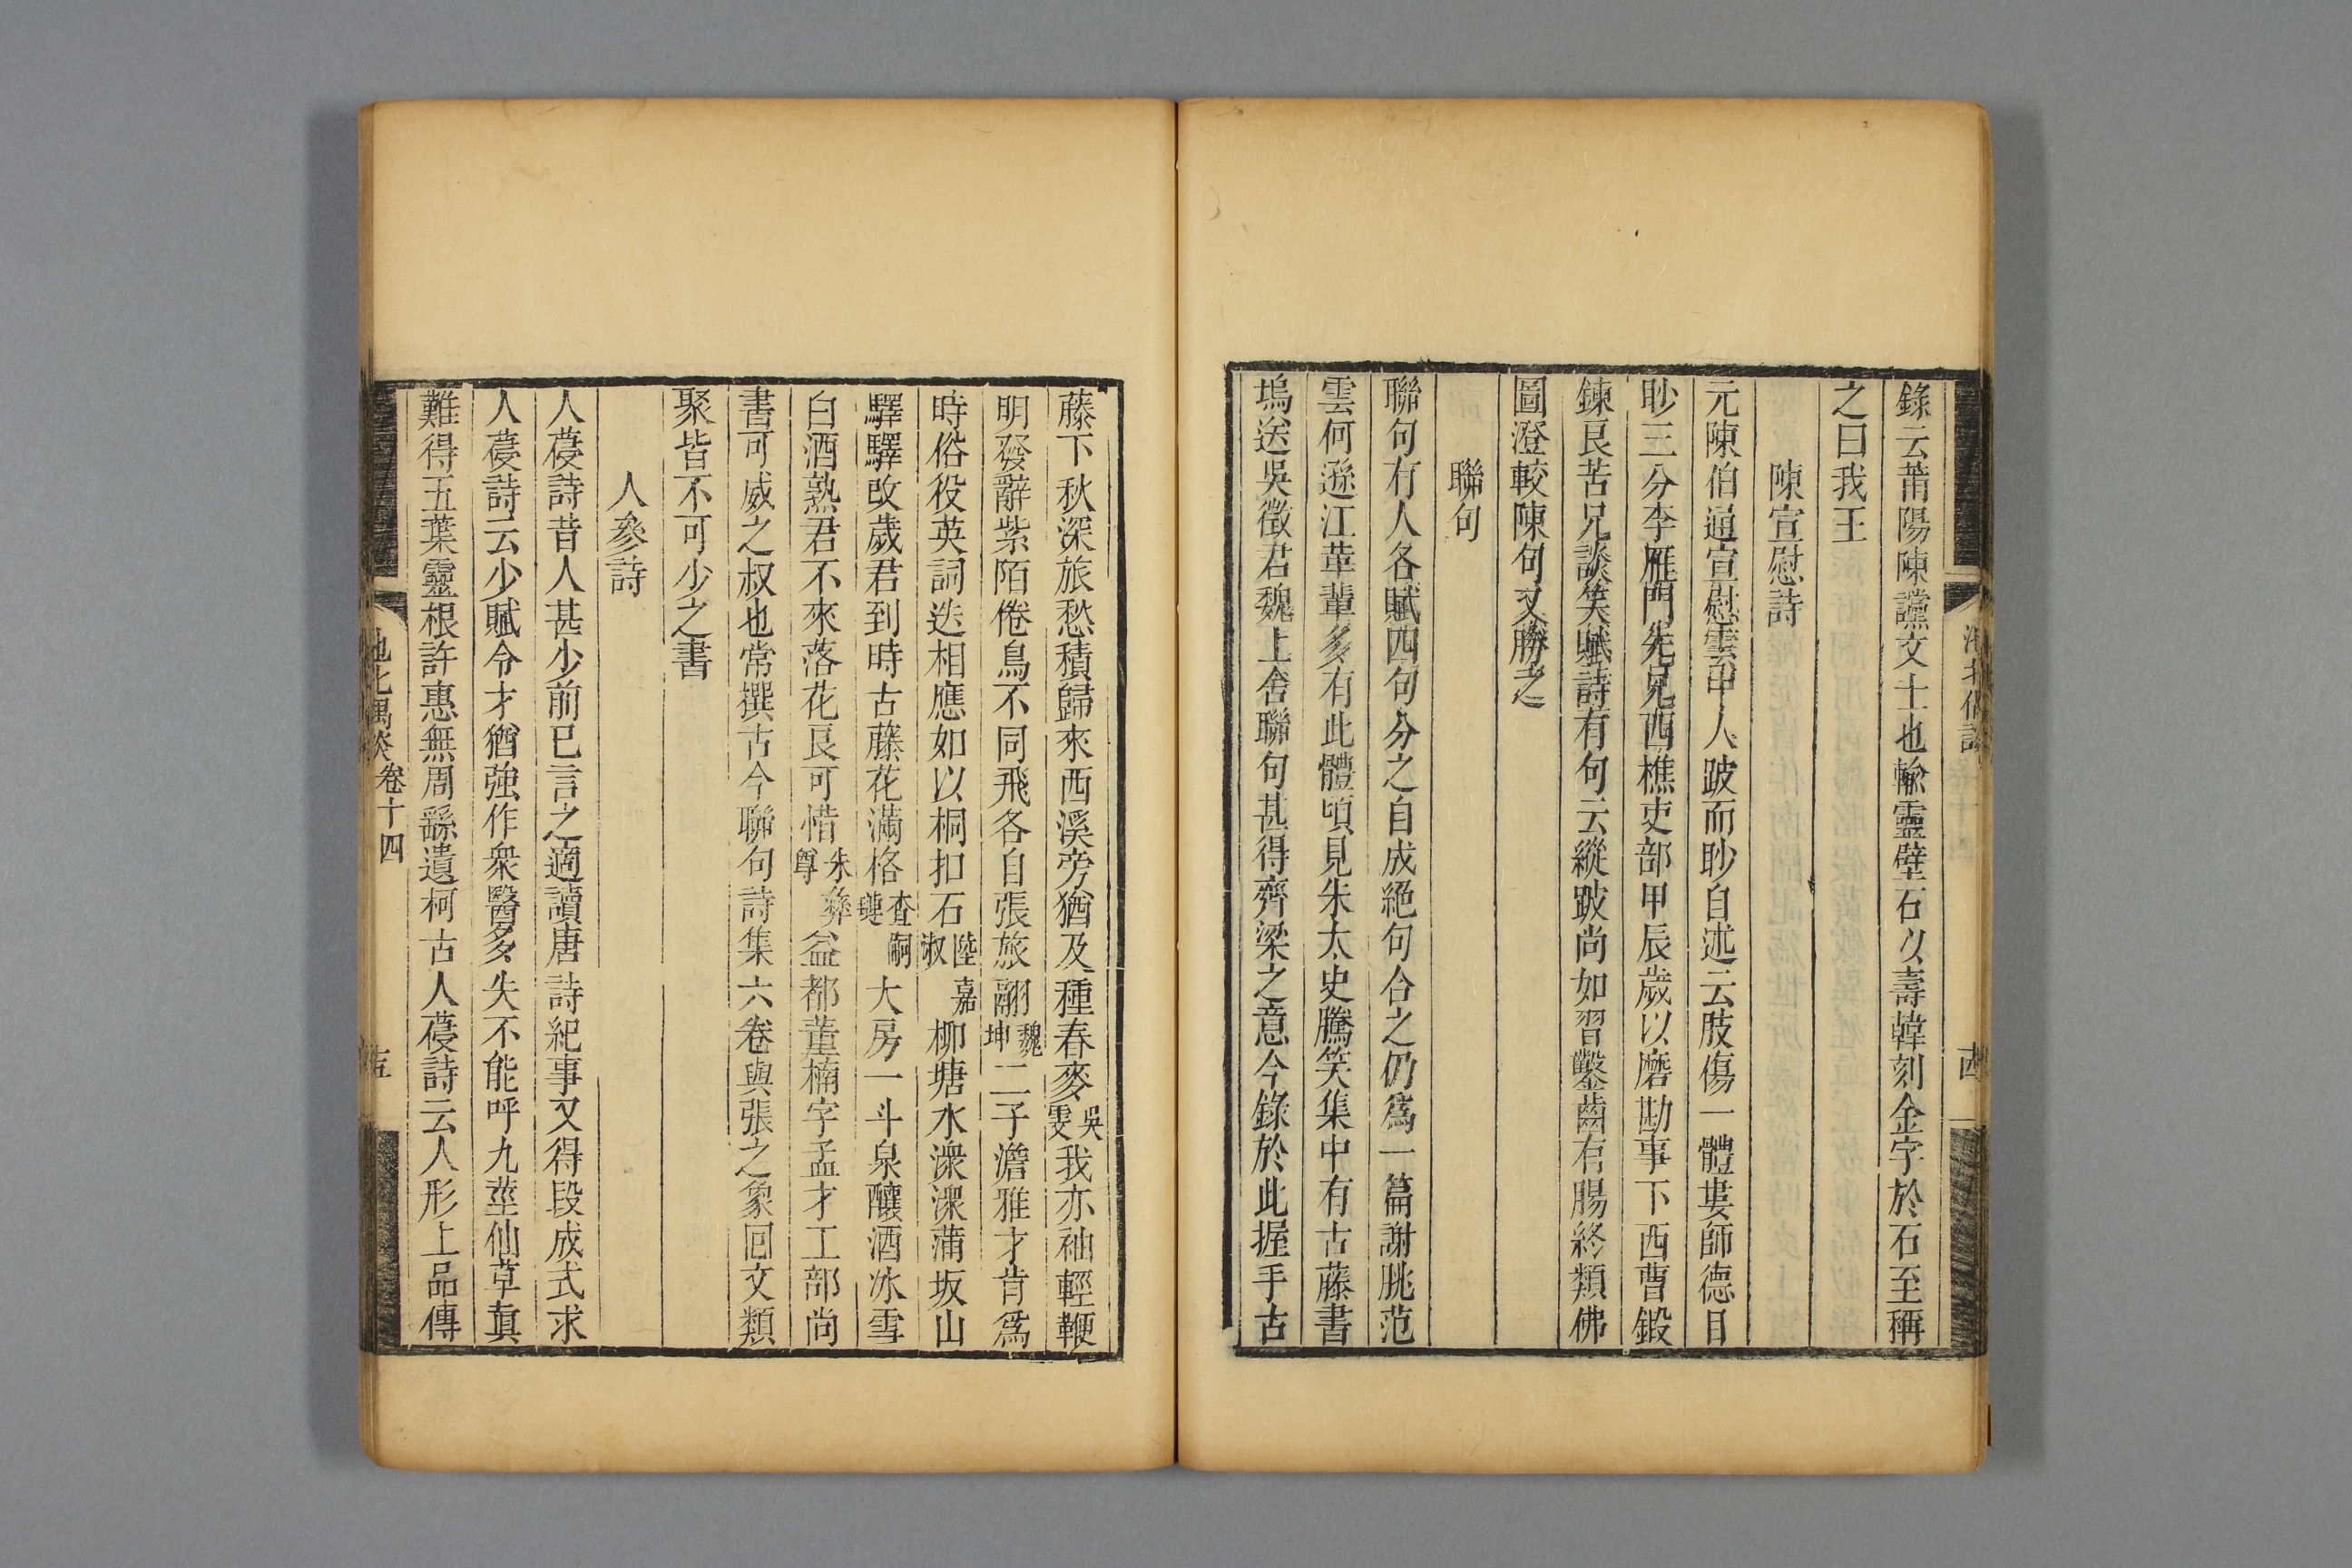 錄云莆陽陳讜文士也輸靈壁石以壽韓刻金字於石至稱
之曰我王
陳宣慰詩
元陳伯通宣慰雲中人跛而眇自述云肢傷一體婁師德目
眇三分李雁門先兄西樵吏部甲辰歲以磨勘事下西曹鍛
鍊良苦兄談笑賦詩有句云縱跛尚如習鑿齒有腸終類佛
圖澄較陳句又勝之
聯句
聯句有人各賦四句分之自成絕句合之仍爲一篇謝朓范
雲何遜江革輩多有此體頃見朱太史騰笑集中有古藤書
塢送吳徵君魏上舍聯句甚得齊梁之意今錄於此握手古
藤下秋深旅愁積歸來西溪旁猶及種春麥吳雯我亦袖輕鞭
明發辭紫陌倦鳥不同飛各自張旅翮魏坤二子澹雅才肯爲
時俗役英詞迭相應如以桐扣石陸嘉淑柳塘水濴濴蒲坂山
驛驛改歲君到時古藤花滿格查嗣璉大房一斗泉釀酒冰雪
白酒熟君不來落花良可惜朱彝尊益都董楠字孟才工部尚
書可威之叔也常撰古今聯句詩集六卷與張之象回文類
聚皆不可少之書
人參詩
人葠詩昔人甚少前已言之適讀唐詩紀事又得段成式求
人葠詩云少賦令才猶強作衆醫多失不能呼九莖仙草真
難得五葉靈根許惠無周繇遺柯古人葠詩云人形上品傳
池北偶談 卷十四